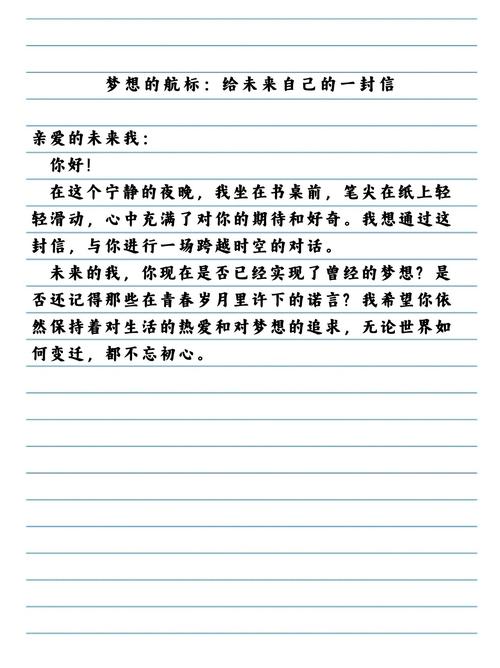 梦想的航标：给未来自己的一封信
亲爱的未来我：
你好！
在这个宁静的夜晚，我坐在书桌前，笔尖在纸上轻
轻滑动，心中充满了对你的期待和好奇。我想通过这
封信，与你进行一场跨越时空的对话。
未来的我，你现在是否已经实现了曾经的梦想？是
否还记得那些在青春岁月里许下的诺言？我希望你依
然保持着对生活的热爱和对梦想的追求，无论世界如
何变迁，都不忘初心。